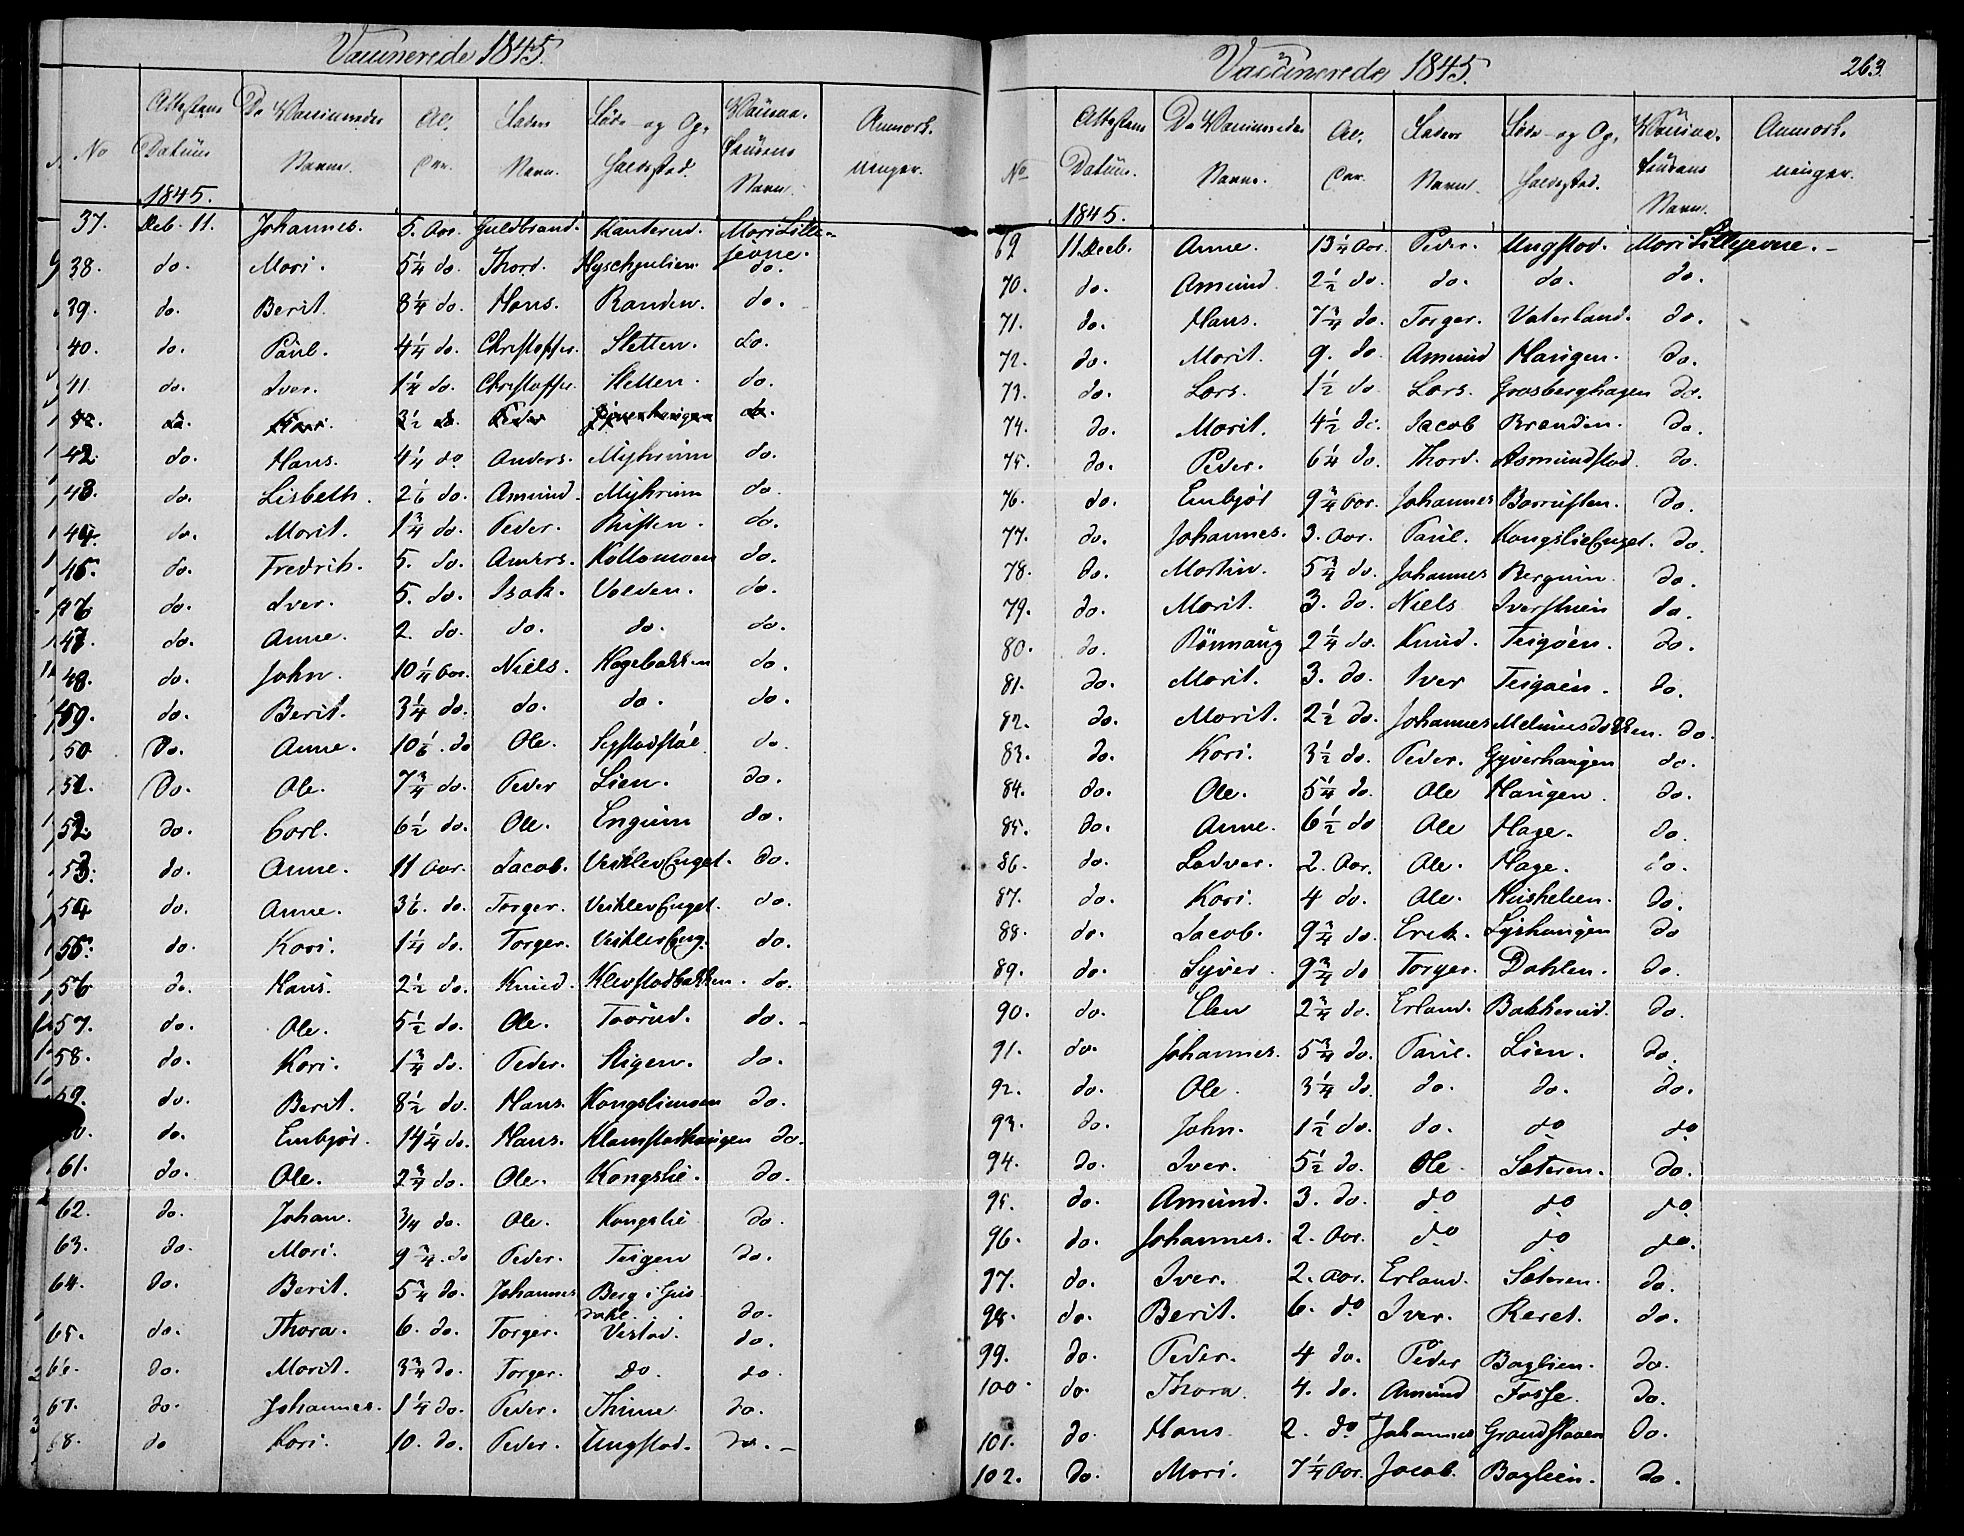 Vaccinerede 1845.
No Attestens Datum 1845. De Vaccineredes Navne. Al, der. Faders Navn. Føde- og Op, holdssted. Vaccina, teurens Navn. Anmærk, ninger.
37. Deb. 11. Johannes. 5. Aar. Guldbrand. Kanterud. Mari Lille-
jevne.
38. do. Mari. 5 1/4 do. Thord. do.
39. do. Berit. 8 1/4 do. Hans. Randen. do.
40. do. Paul. 4 1/4 do. Christoffer. Sletten. do.
41. do. Iver. 1 1/4 do. Christoffer. Sletten. do.
42. do. Kari. 3 1/2 do. Peder Gyverhaugen do.
42. do. Hans. 4 1/4 do Anders. Myhrum do.
43. do. Lisbeth. 2 1/6 do. Amund. Myhrum do.
44. do. Marit. 1 3/4 do. Peder. do.
45. do. Fredrik. 5. do. Anders. Kollomoen do.
46 do. Iver. 5. do. Isak. Volden. do.
47. do. Anne. 2. do. do. do. do.
48. do. John. 10 1/4 Aar. Niels. Hagebakken do.
49. do. Berit. 3 1/4 do. do. do. do.
50 Do. Anne. 10 1/6. do Ole. do.
51. Do. Ole. 7 3/4 do. Peder Lien. do.
52. do. Carl. 6 1/2 do. Ole. Engum do.
53. do. Anne. 11 Aar. Jacob. Veiklev Enget. do.
54 do. Anne. 3 1/6. do. Torger. Veiklev Enget. do.
55. do. Kari. 1 1/4 do. Torger. Veiklev Eng. do.
56 do. Hans. 2 1/2 do. Knud. Klevstadbakken. do.
57. do. Ole. 5 1/2 do. Ole. Toorud. do.-
58. do. Kari. 1 3/4 do. Peder. Stigen. do.
59. do. Berit. 8 1/2 do. Hans. Kongsliemoen do.
60. do. Embjør. 14 1/4 do. Hans. Klomstadhaugen do.
61. do. Ole. 2 3/4 do. Ole. Kongslie. do.
62. do. Johan. 3/4 do. Ole. Kongslie do.
63. do. Mari. 9 3/4. do Peder. Teigen do.
64. do. Berit. 5 3/4 do. Johannes Berg i Gus
dahl. do.
65. do. Thora. 6. do. Torger. Vistad. do.
66. do. Marit. 3 3/4 do. Torger. do. do
67. do. Johannes. 1 1/4 do. Peder. Thune do.
68. do Kari. 10. do. Peder. Ungstad. do.-
Vaccinerede 1845. 263.
No Attestens Datum. 1845. De Vaccineredes Navne. Al, der. Faders Navn. Føde- og Op, holdssted. Vaccina, teurens Navn. Anmærk, ninger.
69 11 Deeb. Anne. 13 1/4 Aar. Peder. Ungstad. Mari Lillejevne.-
70. do. Amund. 2 1/2 do. do. do. do.
71. do. Hans. 7 3/4 do. Torger. Vaterland. do.
72. do. Marit. 9. do Amund Haugen. do.
73. do. Lars. 1 1/2 do Lars. Grosberghagen do.
74. do. Marit. 4 1/2 do. Jacob Brænden. do.
75. do. Peder. 6 1/4 do. Thord. Asmundstad. do.
76. do. Embjør 9 3/4 Aar. Johannes Borrusten. do.
77. do. Johannes. 3. Aar. Paul. Kongslie Enget. do.
78. do. Martin. 5 3/4 do. Johannes Bergum. do.
79. do. Marit. 3. do. Niels Iverstuen do.
80. do. Rønnaug 2 1/4 do. Knud. Teigøen. do.
81. do. Marit. 3. do. Iver Teigøen. do.
82. do. Marit. 2 1/2 do. Johannes Melumsdokken. do.
83. do. Kari. 3 1/2 do. Peder. Gyverhaugen do.
84. do. Ole. 5 1/4 do. Ole Haugen. do.
85. do. Anne. 6 1/2 do Ole Hage. do.
86. do. Ladver. 2. Aar. Ole. Hage. do.
87. do. Kari. 4 do. Ole. Huskelien. do.
88. do. Jacob. 9 3/4 do. Erik. Lyshaugen do
89. do. Syver. 9 3/4 do Torger. Dahlen. do.
90. do. Elen 2 3/4 do. Erland. Bakkerud. do.
91. do. Johannes. 5 3/4 do. Paul. Lien. do.
92. do. Ole. 3 1/4 do do. do. do.
93. do. John. 1 1/2 do. do. do do
94. do. Iver. 5 1/2 do. Ole. Sæteren. do.
95. do. Amund. 3. do. do do do.
96. do. Johannes. 2. Aar. do do do.
97. do. Iver. 2. Aar. Erland. Sæteren. do.
98. do. Berit. 6. do Iver. Reret. do.
99. do. Peder. 4 do. Peder Baglien. do.
100. do. Thora. 4. do. Amund Fosse. do.
101. do. Hans. 2. do. Johannes Grandstaaen do.
102. do. Mari. 7 1/4 Aar. Jacob. Baglien. do.